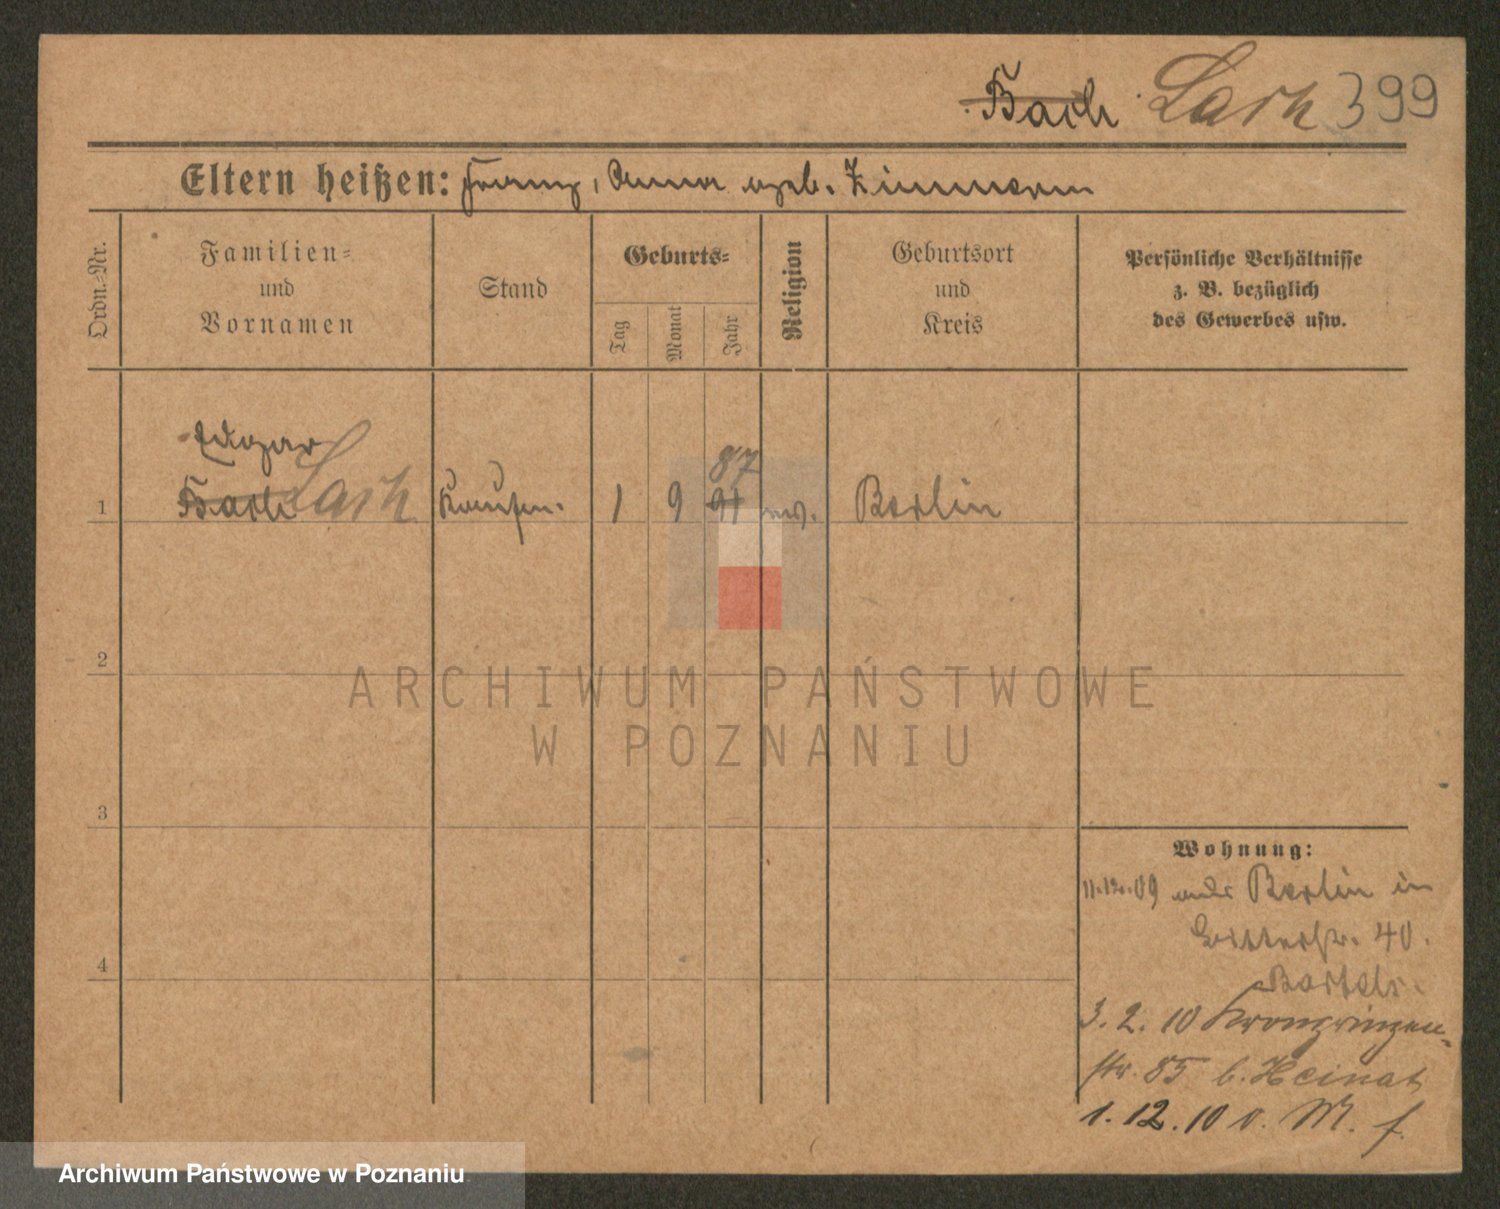 Bach Lach 399
Eltern heißen: Franz, Anna geb. Zimmerm
Ordn.=Nr.
Familien=
und
Vornamen
Stand
Geburts=
Tag
Monat
Jahr
Religion
Geburtsort
und
Kreis
Persönliche Verhältnisse
z. B. bezüglich
des Gewerbes usw.
Edgar
87
1 Bach Lach Kaufm. 1 9 91 ev. Berlin
2
ARCHIWUM PAŃSTWOWE
W POZNANIU
3
Wohnung:
11.12.09 Berlin in
40.
4
Bartels.
3. 2. 10 Kronprinzen=
str. 85 b. Heinat
1. 12. 10 v. M. f.
Archiwum Państwowe w Poznaniu